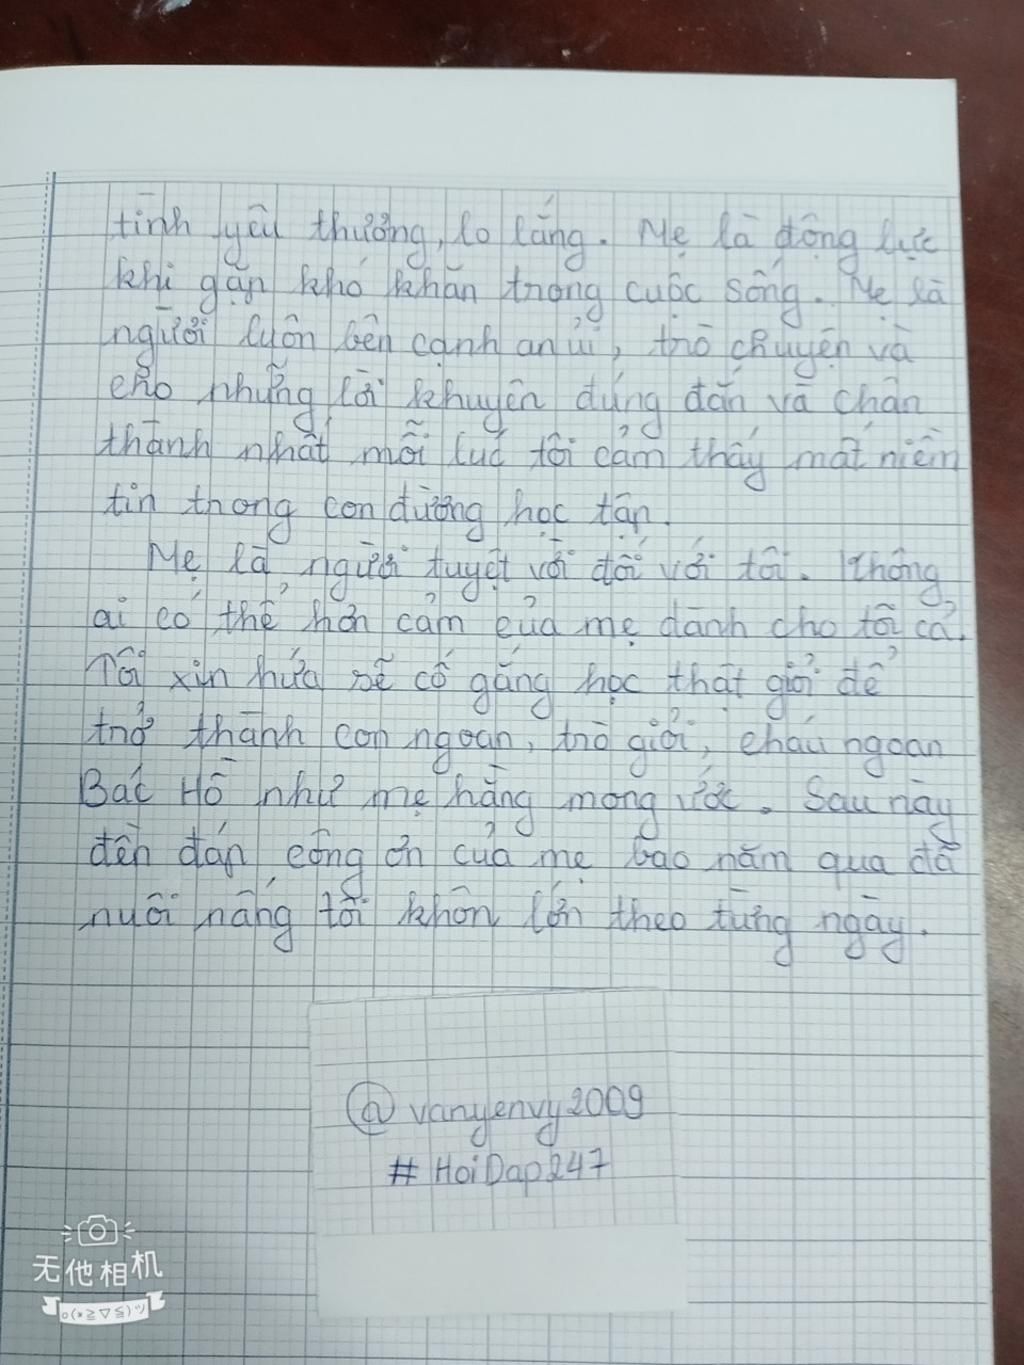 tình yêu thương, lo lắng. Mẹ là động lực
khi gặp khó khăn trong cuộc sống. Mẹ là
người luôn bên cạnh an ủi, trò chuyện và
cho những lời khuyên đúng đắn và chân
thành nhất mỗi lúc tôi cảm thấy mất niềm
tin trong con đường học tập.
Mẹ là người tuyệt vời đối với tôi. Không
ai có thể hơn cảm của mẹ dành cho tôi cả.
Tôi xin hứa sẽ cố gắng học thật giỏi để
trở thành con ngoan, trò giỏi, cháu ngoan
Bác Hồ như mẹ hằng mong ước. Sau này
đền đáp công ơn của mẹ bao năm qua đã
nuôi nấng tôi khôn lớn theo từng ngày.
@vanyenvy2009
#HoiDap247
无他相机
o(*≧▽≦)ツ